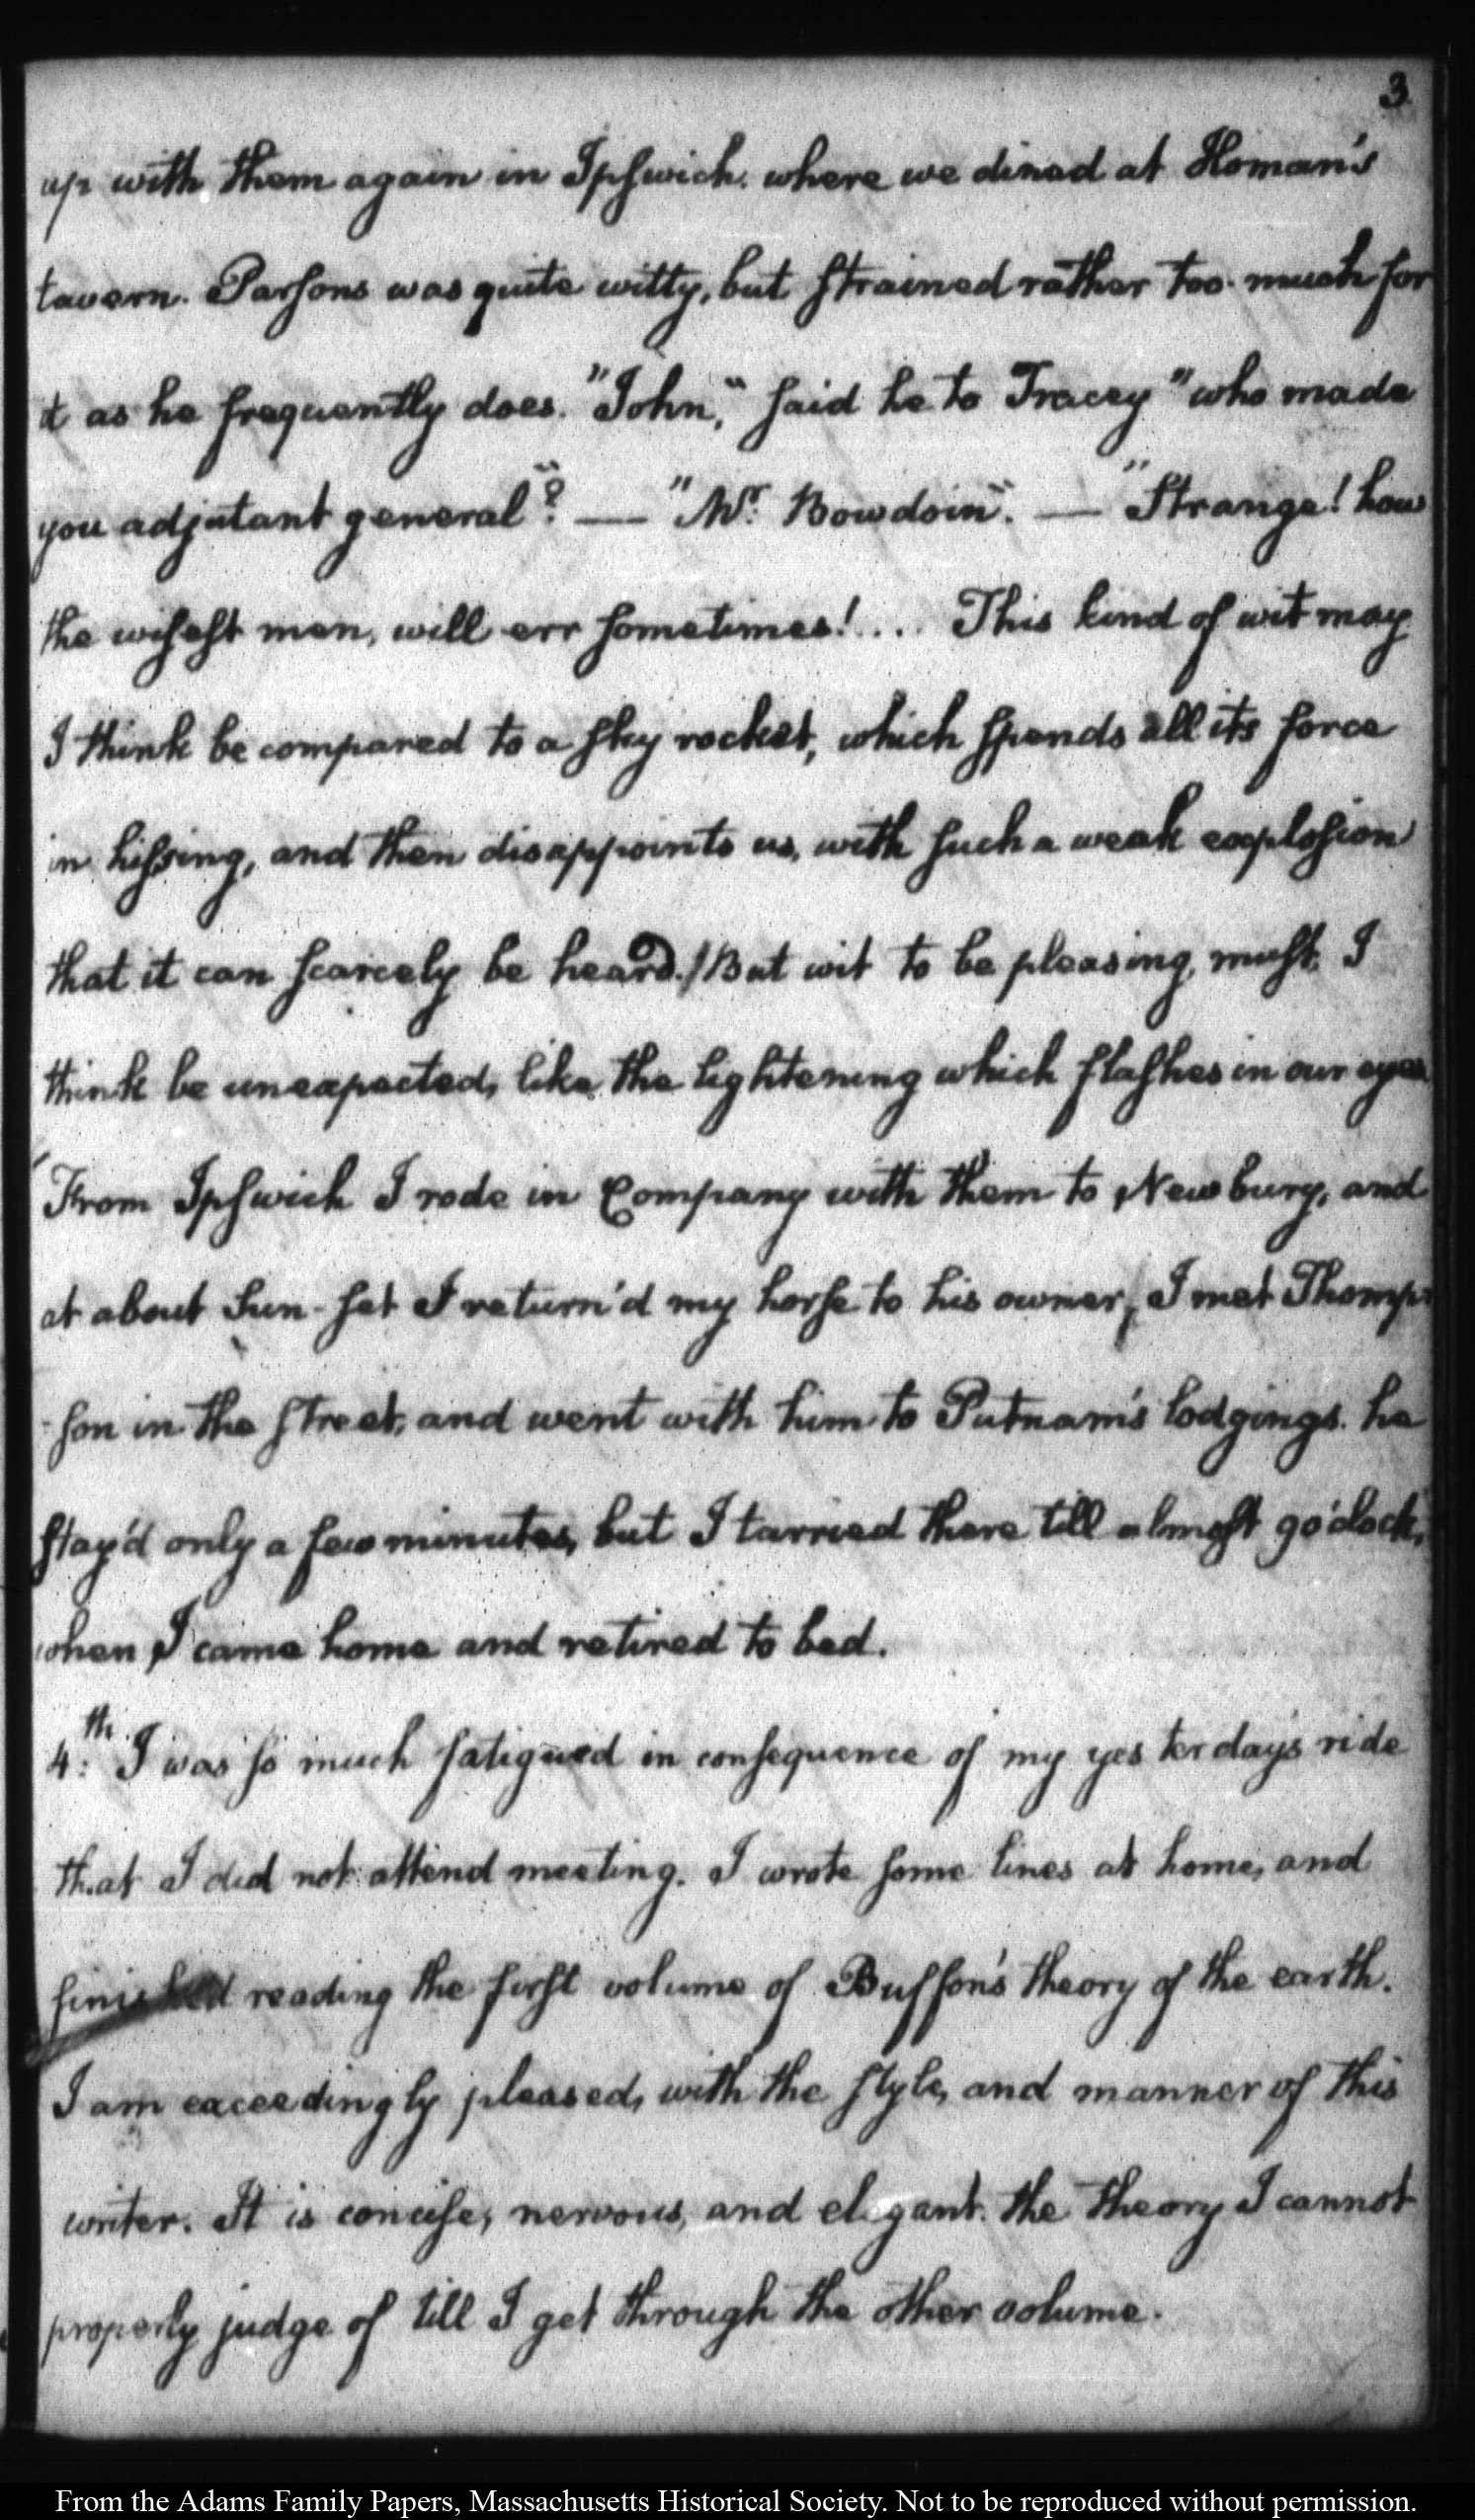 3
up with them again in Ipswich. where we dined at Homan's
tavern. Parsons was quite witty, but strained rather too much for
it as he frequently does. "John," said he to Tracey "who made
you adjutant general"? — "Mr. Bowdoin". — "Strange! how
the wisest men, will err sometimes!... This kind of wit may
I think be compared to a sky rocket, which spends all its force
in hissing, and then disappoints us, with such a weak explosion
that it can scarcely be heard./But wit to be pleasing, must, I
think be unexpected, like the lightening which flashes in our eyes
From Ipswich I rode in Company with them to Newbury, and
at about Sun-set I return'd my horse to his owner, I met Thomp-
-son in the street, and went with him to Putnam's lodgings. he
stay'd only a few minutes, but I tarried there till almost 9 o'clock,
when I came home and retired to bed.
4:th I was so much fatigued in consequence of my yesterday's ride
that I did not attend meeting. I wrote some lines at home, and
finished reading the first volume of Buffon's theory of the earth.
I am exceedingly pleased, with the style, and manner of this
writer. It is concise, nervous, and elegant. the theory I cannot
properly judge of till I get through the other volume.
From the Adams Family Papers, Massachusetts Historical Society. Not to be reproduced without permission.